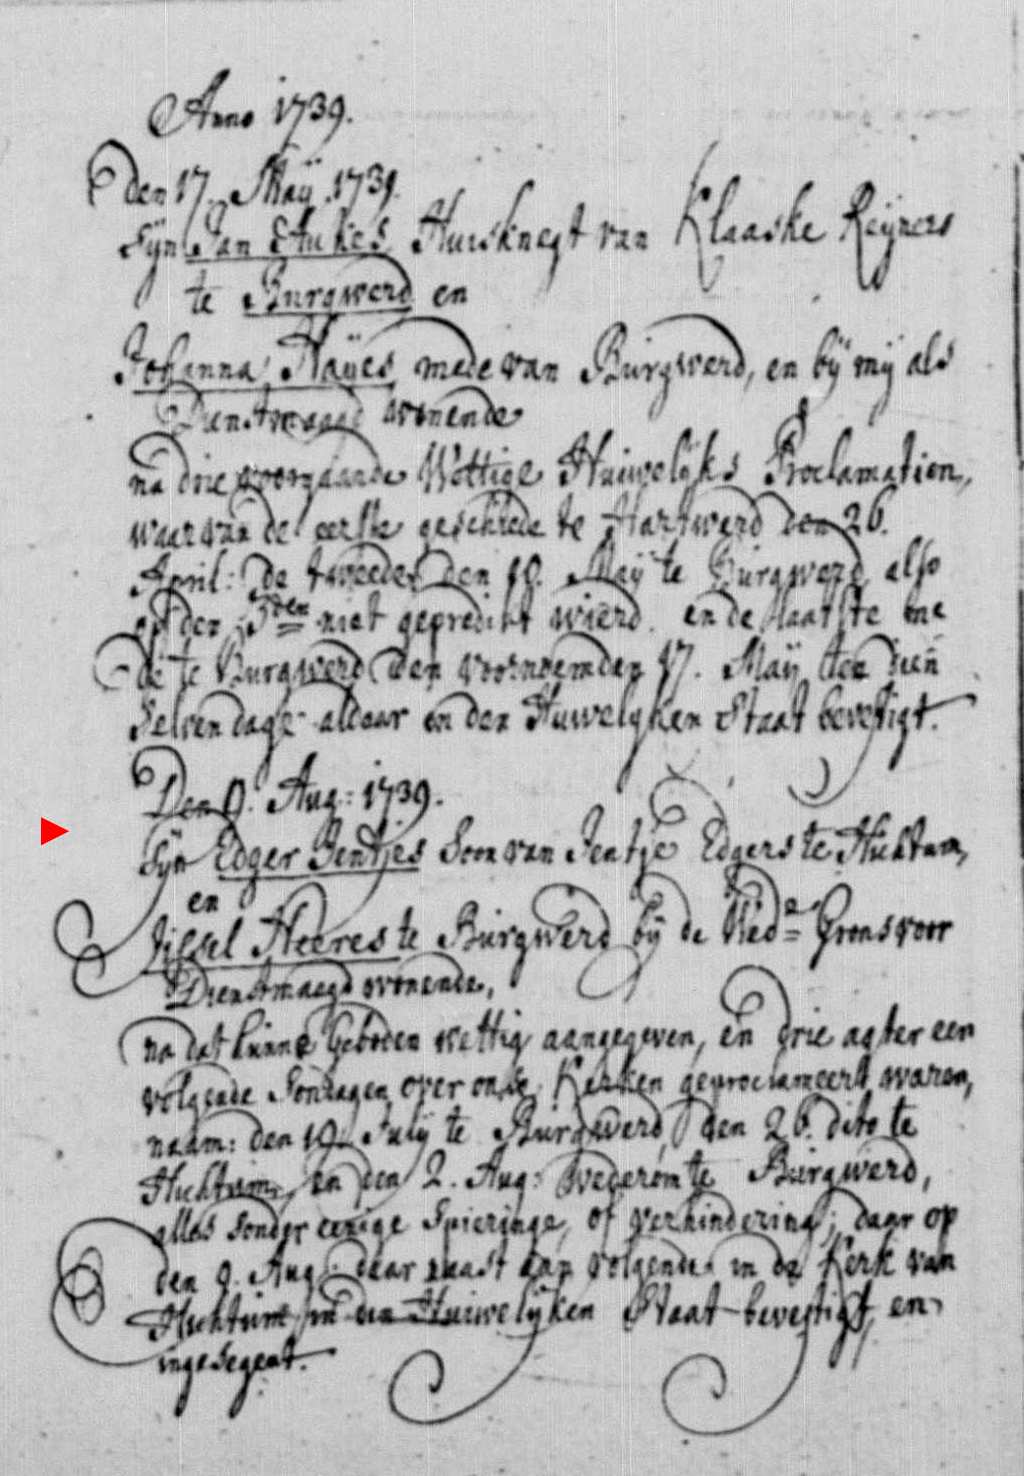 Anno 1739.
Den 17. Maÿ. 1739.
Sÿn Jan Aukes Huisknegt van Klaaske Reÿners
te Burgwerd en
Johanna Haÿes mede van Burgwerd, en bÿ mÿ als
Dienstmaagd wonende
na drie voorgaande Wettige Huiwelÿks Proclamatien,
waar van de eerste geschiede te Hartwerd den 26.
April: de tweede den 10. Maÿ te Burgwerd, also
op den 3den niet gepredikt wierd. en de laatste me
de te Burgwerd den voornoemden 17. Maÿ ten
selven dage aldaar in den Huwelyken Staat bevestigt.
Den 9. Aug: 1739.
Sÿn Edger Jentjes Soon van Jentje Edgers te Hichtum,
en
Jissel Heeres te Burgwerd bÿ de Wede Gronsvoor
Dienstmaegd wonende,
na dat hunne Geboden wettig aangegeven, en drie agter een
volgende Sondagen over onse Kerken geproclameert waren,
naam: den 19. Julÿ te Burgwerd, den 26. dito te
Hichtum, en den 2. Aug: wederom te Burgwerd,
alles sonder eenige spieringe, of verhindering; daar op
den 9. Aug: daar naast aan volgende in de Kerk van
Hichtum in den Huiwelÿken Staat bevestigt, en
ingesegent.